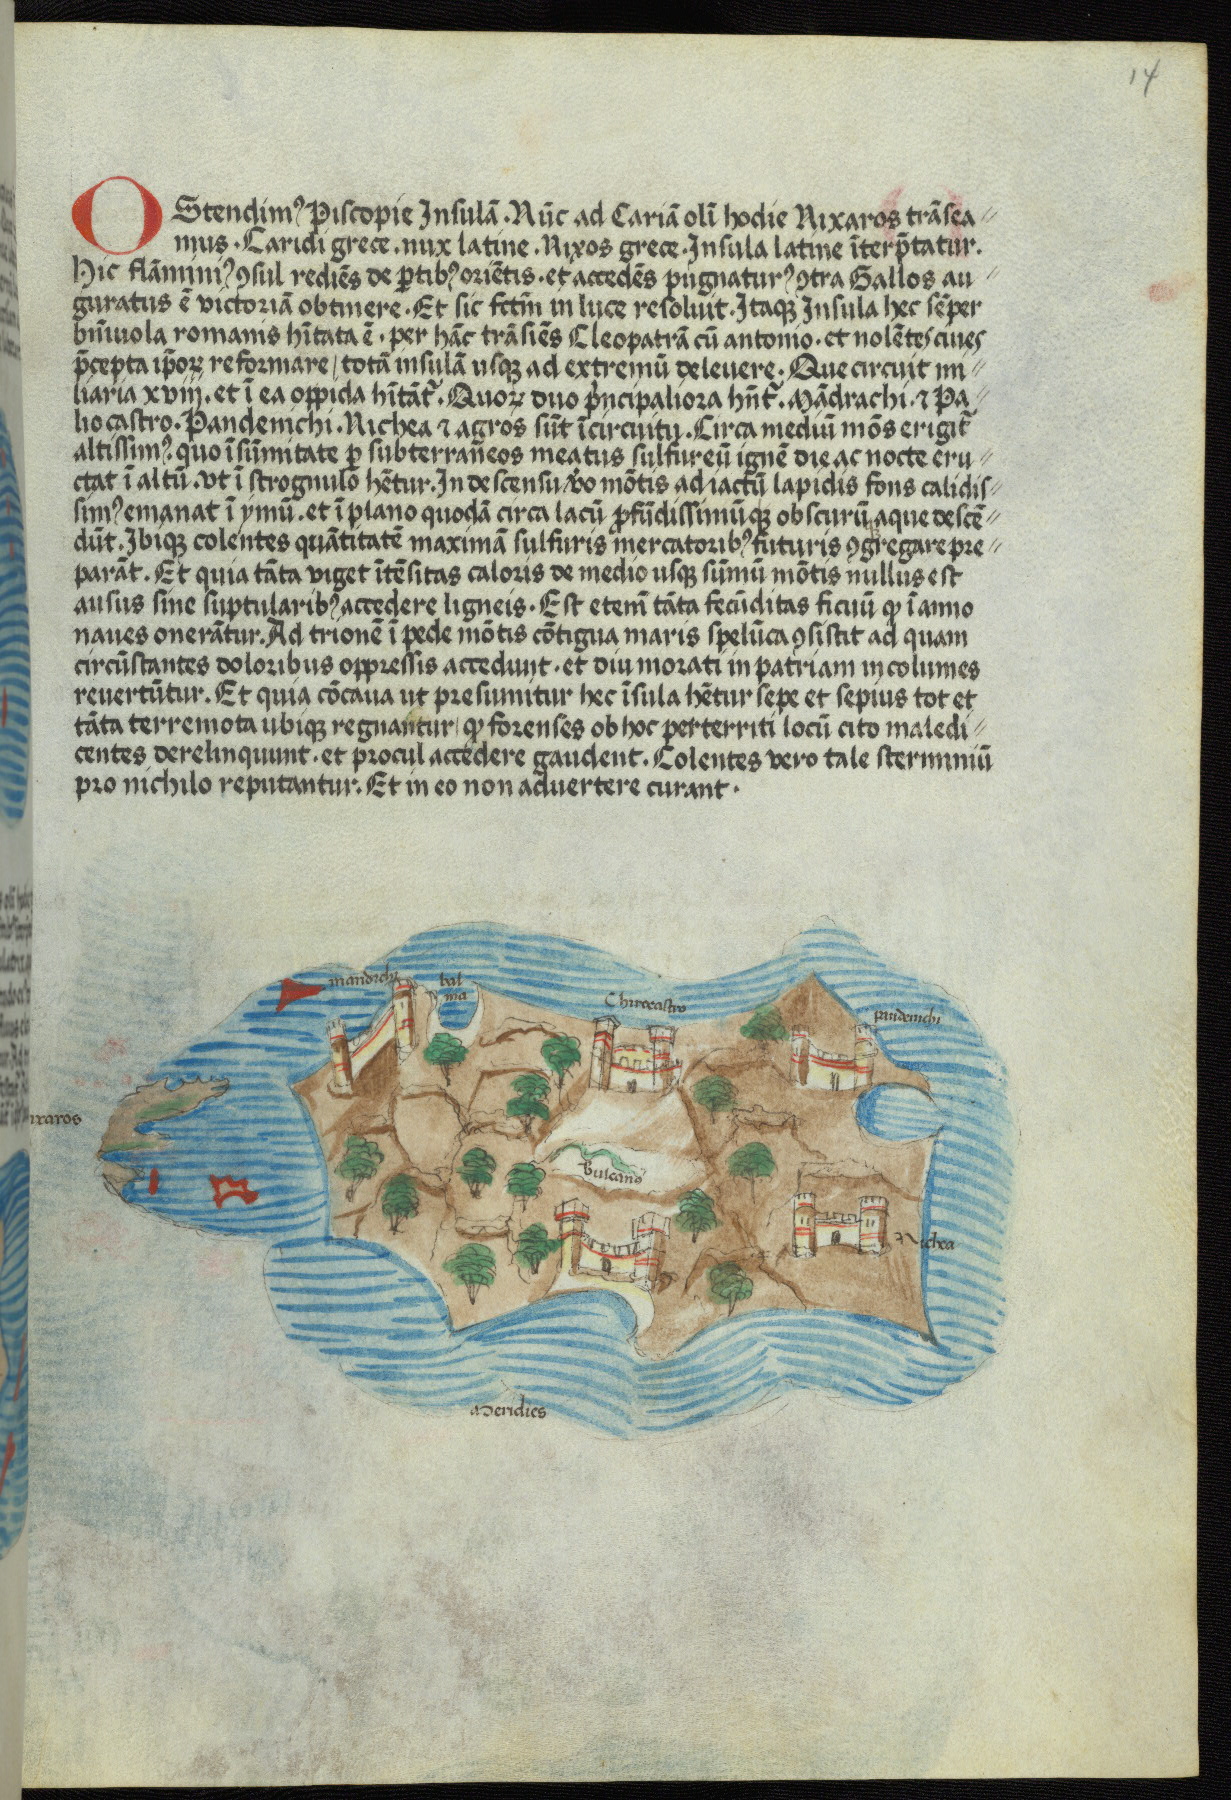 14
OStendimꝰ Piscopie Insulā. Nūc ad Cariā olī hodie Nixaros trāsea⸗
mus. Caridi grece. nux latine. Nixos grece. Insula latine īterp̄tatur.
Hic flāminiꝰ ꝯsul rediēs de ꝑtibꝰ oriētis. et accedēs pugnaturꝰ ꝯtra Gallos au⸗
guratus ē victoriā obtinere. Et sic fctm̄ in luce resoluit. Itaqꝫ Insula hec sēper
bn̄iuola romanis hītata ē. per hāc trāsiēs Cleopatrā cū antonio. et nolētes ciues
p̄cepta ip̄oꝝ reformare / totā insulā usqꝫ ad extremū deleuere. Que circuit mi⸗
liaria xviij. et ī ea oppida hītāt᷑. Quoꝝ duo pͥncipaliora hn̄t᷑. Mādrachi. ⁊ Pa⸗
liocastro. Pandenichi. Nichea ⁊ agros sūt īcircuitu. Circa mediū mōs erigit᷑
altissimꝰ. quo īsūmitate ꝑ subterrāneos meatus sulfureū ignē die ac nocte eru⸗
ctat ī altū. vt ī strognulo hētur. In descensu v̊o mōtis ad iactū lapidis fons calidis⸗
simꝰ emanat ī ymū. et ī plano quodā circa lacū ꝓfūdissimūqꝫ obscurū aque descē⸗
dūt. Ibiqꝫ colentes quātitatē maximā sulfuris mercatoribꝰ futuris ꝯgregare pre⸗
parāt. Et quia tāta viget ītēsitas caloris de medio usqꝫ sūmū mōtis nullus est
ausus sine suptularibꝰ accedere ligneis. Est etem̄ tāta fecūditas ficuū qꝫ ī anno
naues onerātur. Ad trionē ī pede mōtis cōtigua maris spelūca ꝯsistit ad quam
circūstantes doloribus oppressis accedunt. et diu morati in patriam incolumes
reuertūtur. Et quia cōcaua ut presumitur hec īsula hētur sepe et sepius tot et
tāta terremota ubiqꝫ regnantur / qꝫ forenses ob hoc perterriti locū cito maledi⸗
centes derelinquunt. et procul accedere gaudent. Colentes vero tale sterminiū
pro nichilo reputantur. Et in eo non aduertere curant.
mandrichi
bal
nia
Chirocastro
pandenichi
ixaros
Vulcanꝰ
Nichea
Meridies